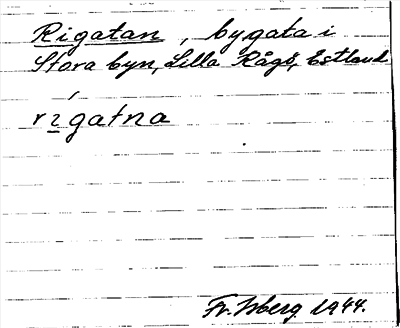 Rigatan, bygata i
Stora byn, Lilla Rågö, Estland
rigatna
Fr. Isberg 1944.